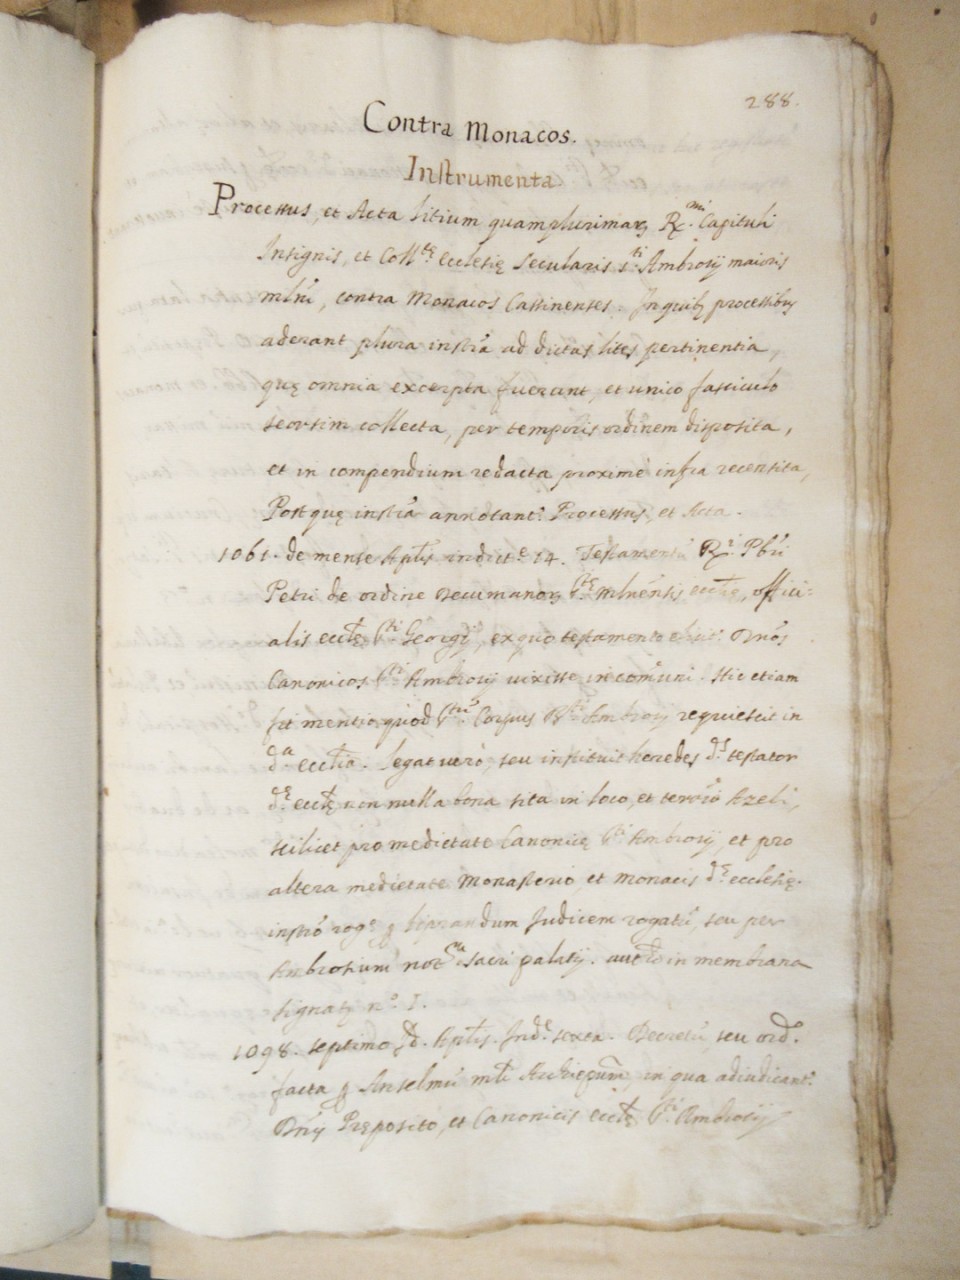 288.
Contra Monacos.
Instrumenta
Processus, et Acta litium quamplurimarꝫ R.mi Capituli
Insignis, et Coll.tę Ecclesię secularis s.ti Ambrosij maioris
mlni, contra Monacos Cassinenses. In quibꝫ processibus
aderant plura instra ad dictas lites pertinentia,
quę omnia excerpta fuerunt, et unico fasciculo
seorsim collecta, per temporis ordinem disposita,
et in compendium redacta proximè infra recensita,
Post quę instra annotant.r Processus, et Acta.
1061. de mense Aplis indict.e 14. Testamentū R.i Pbri
Petri de ordine Decumanorꝫ S.tę mlnensis ecclię, offici=
alis ecclę s.ti Georgij, ex quo testamento Dnos
Canonicos s.ti Ambrosij uixisse in comuni. Hic etiam
fit mentio quod s.tum Corpus B.ti Ambrosij requiescit in
d.a ecclia. legat uerò, seu instituit heredes d.s testator
d.ę ecclę non nulla bona sita in loco, et terrio Azeli,
scilicet pro medietate Canonicę s.ti Ambrosij, et pro
altera medietate Monasterio, et monacis d.ę ecclesię.
instro rog.o p dum Judicem rogatū, seu per
Ambrosium not.m sacri palatij. in membrana
signat n.o I.
1098. septimo Id. Aplis. Ind.e sexta. Decretū, seu ord.
facta p Anselmū mli Archiepum, in qua adiudicant.r
Dnis Pręposito, et Canonicis ecclę s.ti Ambrosij